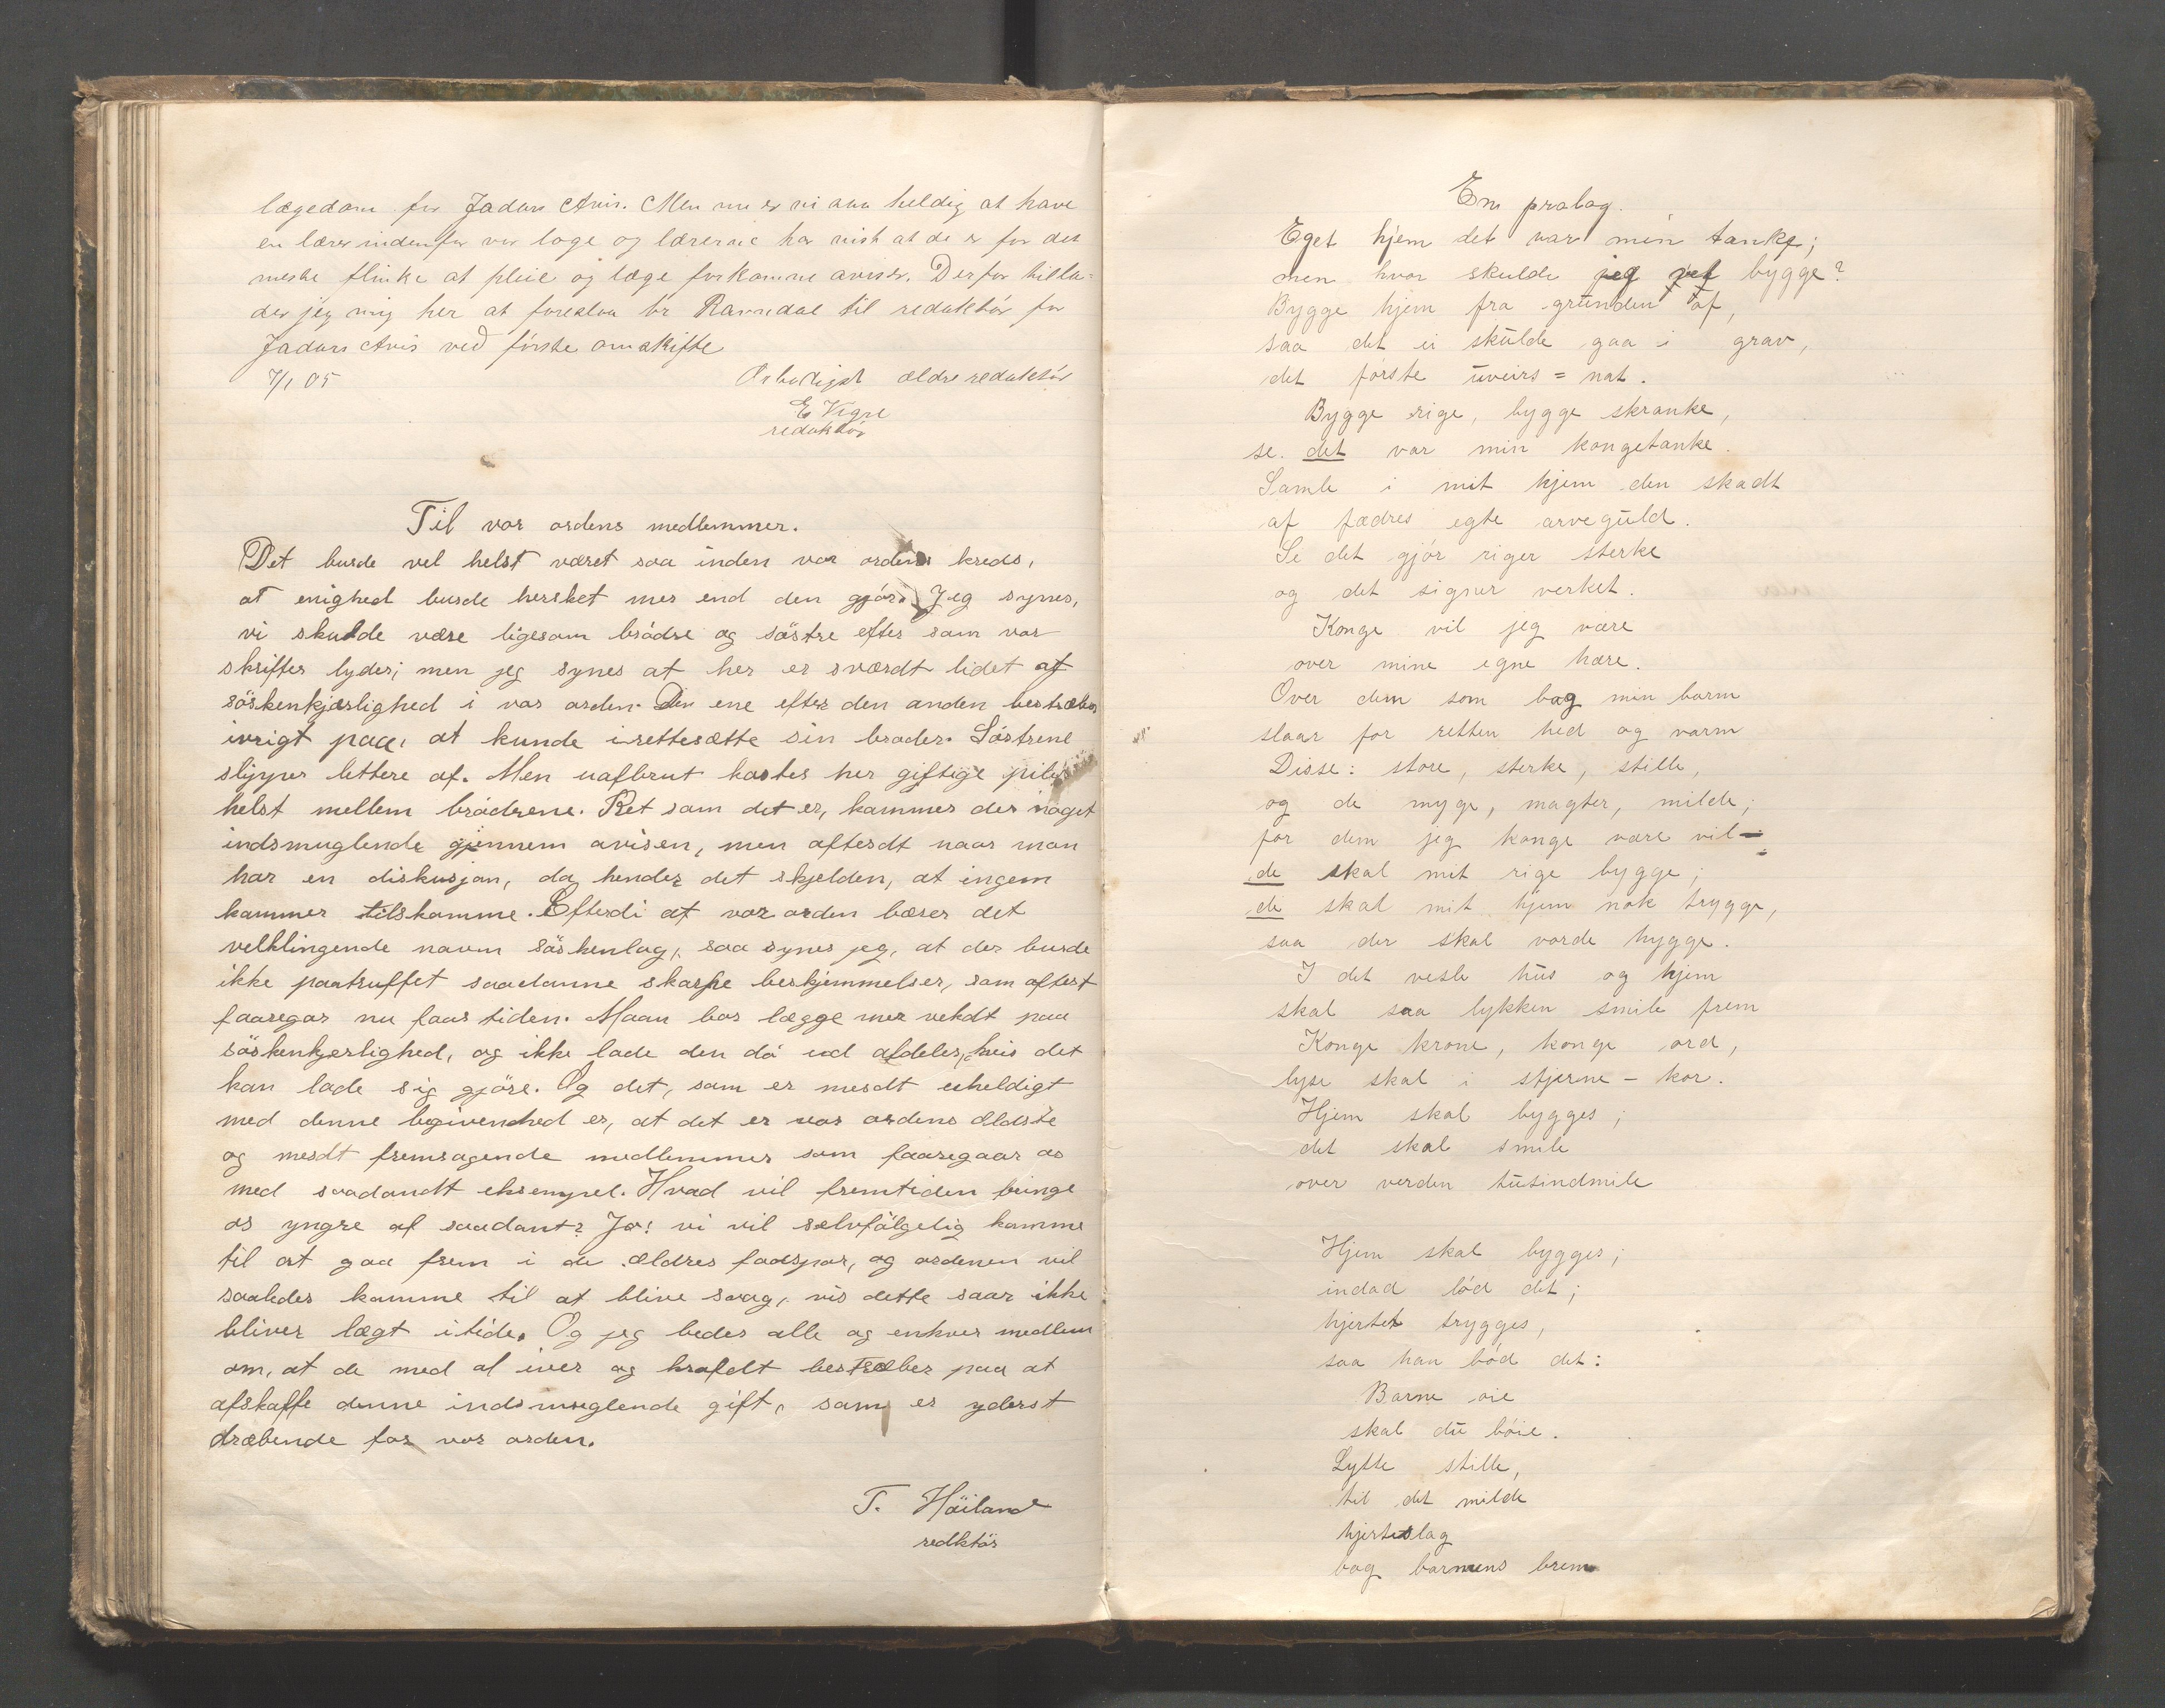 lægedom for Jadars Avis. Men nu er vi saa heldig at have
en lærer indenfor vor loge og lærerne har vist at de er for det
meste flinke at pleie og læge forkomne aviser. Derfor tilla=
der jeg mig her at foreslaa br Ravndal til redaktør for
Jadars Avis ved første omskifte
7/1 05
Ærbødigst ældre redaktör
E Vigre
redaktör
Til vor ordens medlemmer.
Det burde vel helst været saa inden vor ordens kreds,
at enighed burde hersket mer end den gjör. Jeg synes,
vi skulde være ligesom brödre og söstre efter som vor
skrifter lyder; men jeg synes at her er sværdt lidet af
söskenkjærlighed i vor orden. Den ene efter den anden bestræber
ivrigt paa, at kunde irettesætte sin broder. Söstrene
slipper lettere af. Men uafbrut kastes her giftige piler
helst mellem brödrene. Ret som det er, kommer der noget
indsmuglende gjennem avisen, men oftesdt naar man
har en diskusjon, da hender det skjelden, at ingen
kommer tilskamme. Efterdi at vor orden bærer det
velklingende navn söskenlag, saa synes jeg, at der burde
ikke paatruffet saadanne skarpe beskjemmelser, som oftest
faaregar nu faar tiden. Maan bør lægge mer vekdt paa
söskenkjerlighed, og ikke lade den dö ud afdeles, hvis det
kan lade sig gjöre. Og det, som er mesdt uheldigt
med denne begivenhed er, at det er vor ordens ældste
og mesdt fremragende medlemmer som faaregaar os
med saadandt eksempel. Hvad vil fremtiden bringe
os yngre af saadant? Jo! vi vil selvfölgelig komme
til at gaa frem i de ældres fodspor, og ordenen vil
saaledes komme til at blive svag, vis dette saar ikke
bliver lægt itide. Og jeg beder alle og enhver medlem
om, at de med al iver og krafdt bestræber paa at
afskaffe denne indsmuglende gift, som er yderst
dræbende for vor orden.
T. Höiland
redktör
En prolog.
Eget hjem det var min tanke;
men hvor skulde jeg vel bygge?
Bygge hjem fra grunden af,
saa det ei skulde gaa i grav,
det første uveirs = nat.
Bygge rige, bygge skranke,
se. det var min kongetanke.
Samle i mit hjem den skadt
af fædres egte arveguld.
Se det gjör riger sterke
og det signer verket.
Konge vil jeg være
over mine egne hære.
Over dem som bag min barm
slaar for retten hed og varm
Disse: store, sterke, stille,
og de myge, magter, milde;
for dem jeg konge være vil –
de skal mit rige bygge;
de skal mit hjem nok trygge,
saa der skal vorde hygge.
I det vesle hus og hjem
skal saa lykken smile frem
Konge krone, konge ord,
lyse skal i stjerne – kor.
Hjem skal bygges;
det skal smile
over verden tusindmile
Hjem skal bygges;
indad löd det;
hjertet trygges,
saa han böd det:
Barne öie
skal du böie.
Lytte stille,
til det milde
hjerteslag
bag barmens brem